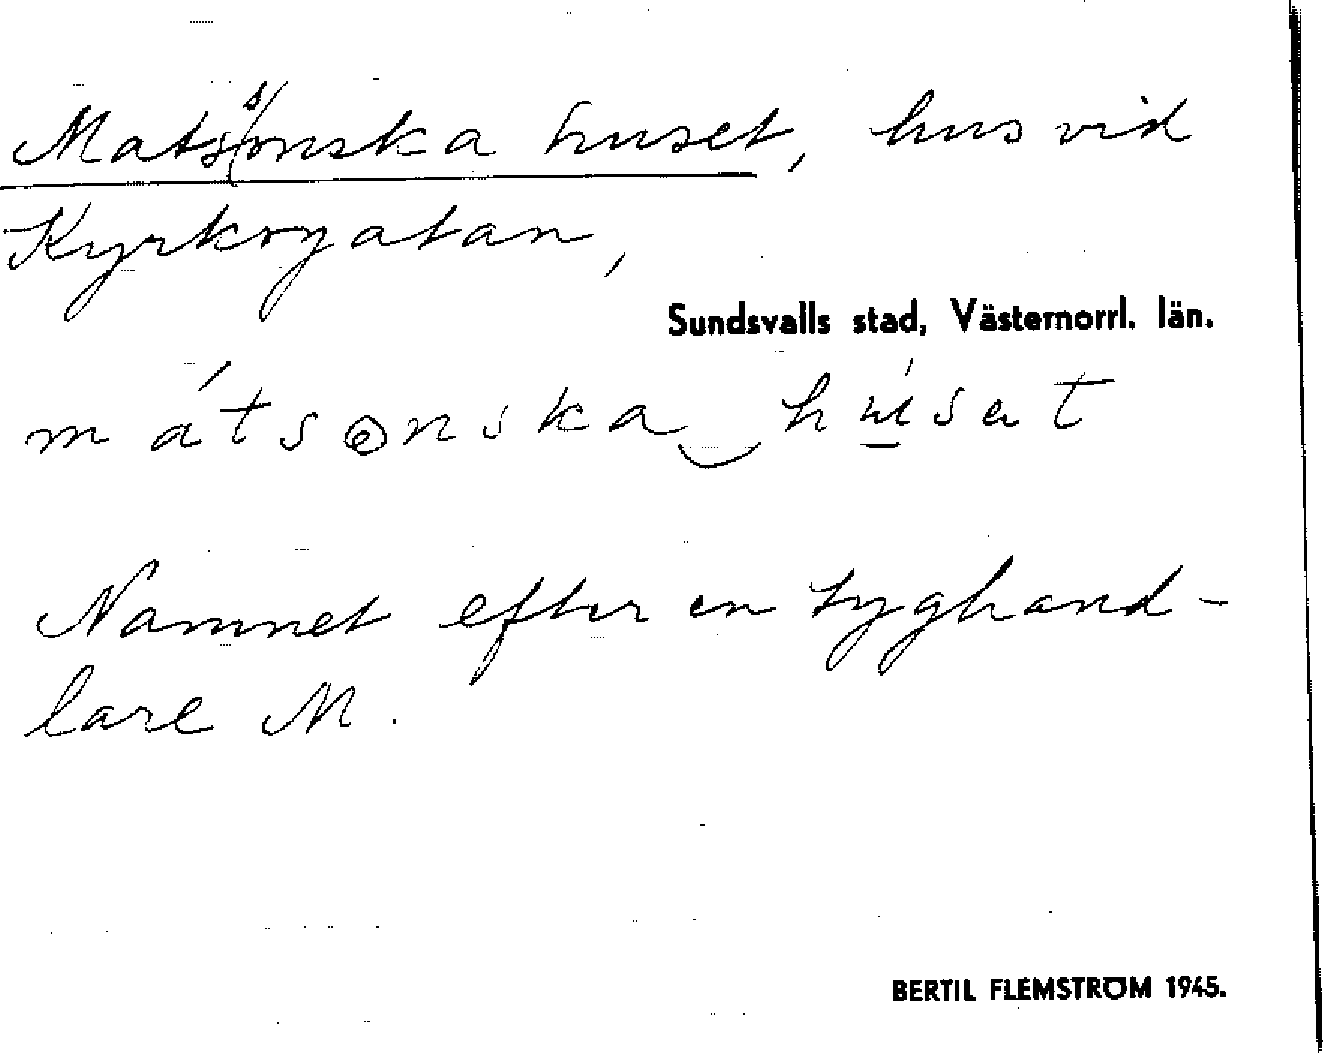 Matssonska huset, hus vid
Kyrkogatan,
Sundsvalls stad, Västernorrl. län.
mátsonska huset
Namnet efter en tyghand-
lare M.
BERTIL FLEMSTRÖM 1945.